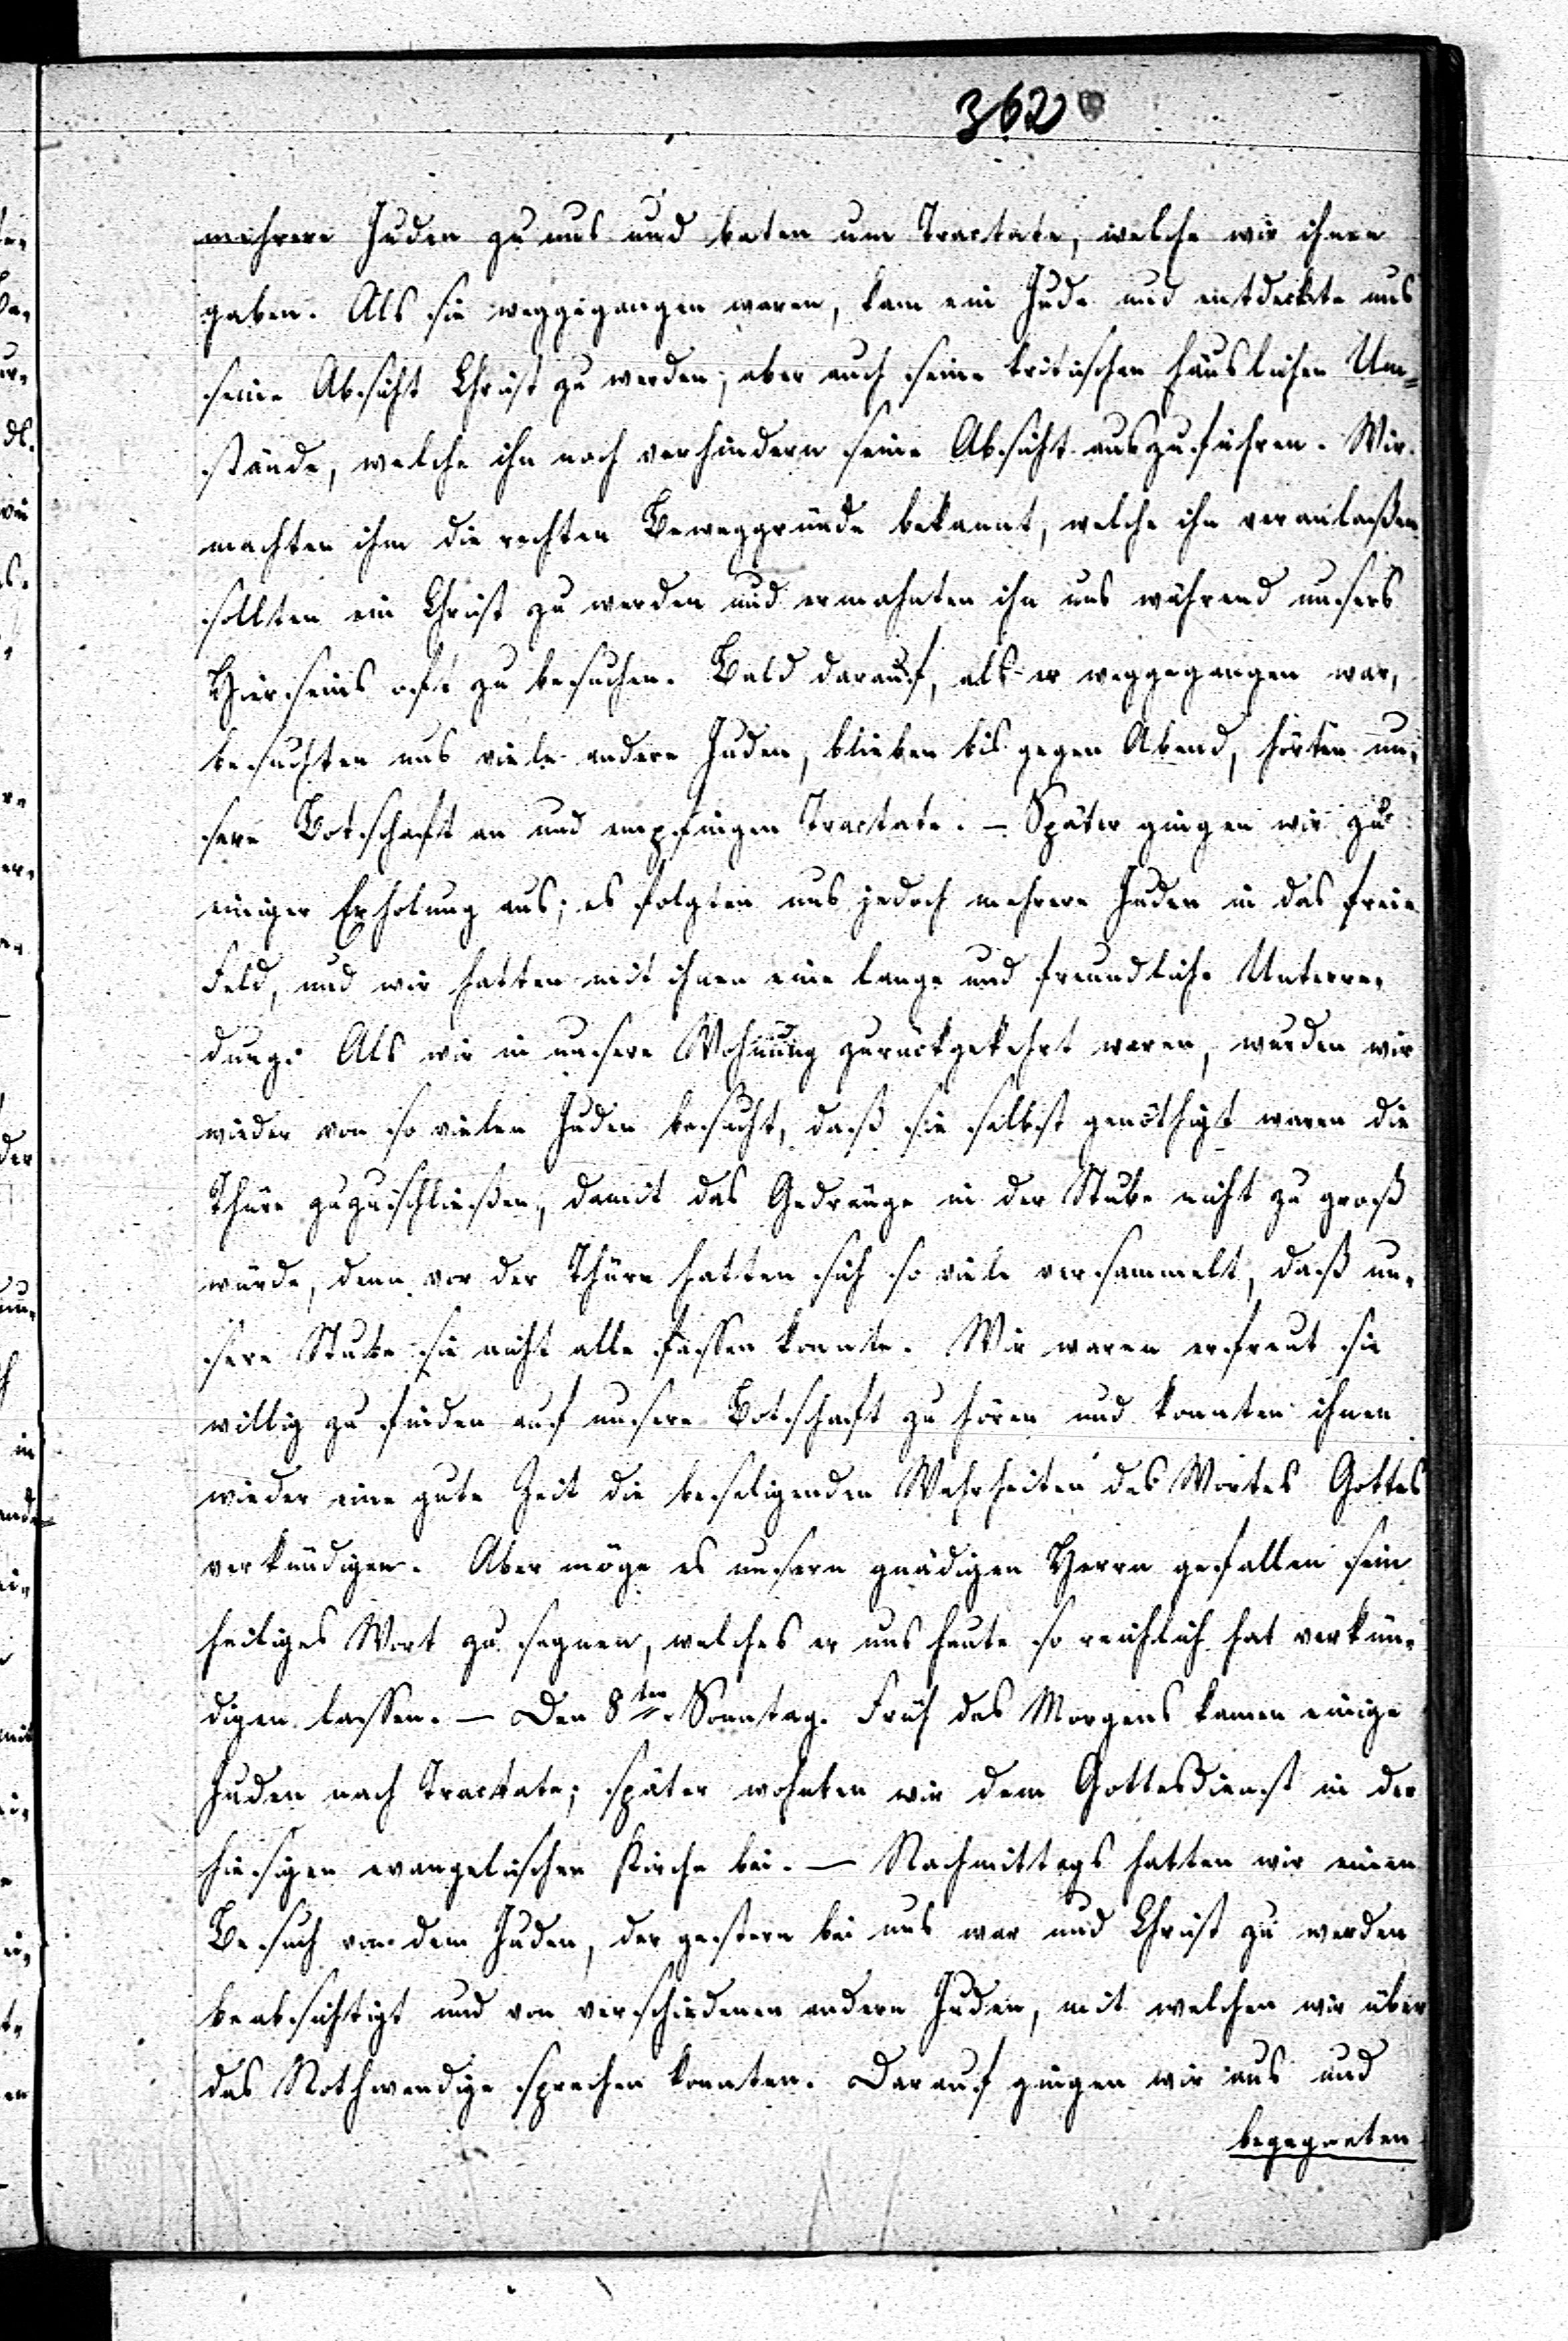 362
mehrere Juden zu uns und baten um Tractate, welche wir ihnen
gaben. Als sie weggegangen waren, kam ein Jude und entdeckte uns
seine Absicht Christ zu werden; aber auch seine kritischen häuslichen Um-
stände, welche ihn noch verhindern seine Absicht auszuführen. Wir
machten ihm die rechten Beweggründe bekannt, welche ihn veranlaßen
sollten ein Christ zu werden und ermahnten ihn uns während unsers
Hierseins oft zu besuchen. Bald darauf, als er weggegangen war,
besuchten uns viele andere Juden, blieben bis gegen Abend, hörten un-
sere Botschaft an und empfingen Tractate. – Später gingen wir zu
einiger Erholung aus; es folgten uns jedoch mehrere Juden in das freie
Feld, und wir hatten mit ihnen eine lange und freundliche Unterre-
dung. Als wir in unsere Wohnung zurückgekehrt waren, wurden wir
wieder von so vielen Juden besucht, daß sie selbst genöthigt waren die
Thüre zuzuschließen, damit das Gedränge in der Stube nicht zu groß
würde, denn vor der Thüre hatten sich so viele versammelt, daß un-
sere Stube sie nicht alle fassen konnte. Wir waren erfreut sie
willig zu finden auf unsere Botschaft zu hören und konnten ihnen
wieder eine gute Zeit die beseligenden Wahrheiten des Wortes Gottes
verkündigen. Aber möge es unserm gnädigen Herrn gefallen sein
heiliges Wort zu segnen, welches er uns heute so reichlich hat verkün-
digen lassen. – Den 8ten Sonntag. Früh des Morgens kamen einige
Juden nach Tractate; später wohnten wir dem Gottesdienst in der
hiesigen evangelischen Kirche bei. – Nachmittags hatten wir einen
Besuch von dem Juden, der gestern bei uns war und Christ zu werden
beabsichtigt und von verschiedenen andern Juden, mit welchen wir über
das Nothwendige sprechen konnten. Darauf gingen wir aus und
begegneten